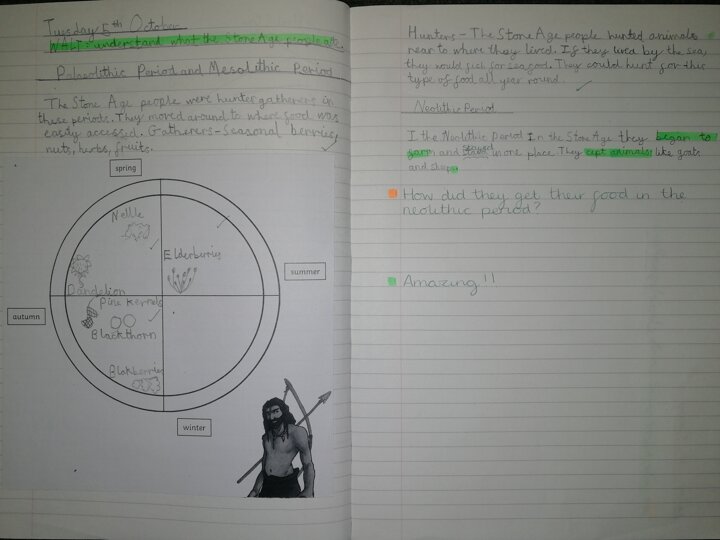 Tuesday 5th October
WALT: understand what the Stone Age people ate.
Palaeolithic Period and Mesolithic Period
The Stone Age people were hunter gatherers in
these periods. They moved around to where food was
easily accessed. Gatherers - Seasonal berries,
nuts, herbs, fruits.
spring
Nettle
Elderberries
summer
Dandelion
Pine kernels
autumn
Blackthorn
Blakberries
winter
Hunters - The Stone Age people hunted animals
near to where they lived. If they lived by the sea,
they would fish for sea food. They could hunt for this
type of food all year round.
Neolithic Period
I the Neolithic Period In the Stone Age they began to
farm and stayed in one place. They cept animals like goats
and sheep
How did they get their food in the
neolithic period?
Amazing!!